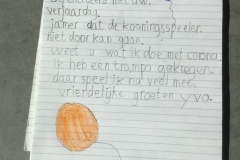 gefeliciteerd met uw
verjaardag.
jamer dat de kooningsspeelen
niet door kan gaan.
weet u wat ik doe met corona
ik hen een trampo gekregen.
daar speel ik nu veel mee.
vrierdelijke groeten yvo.